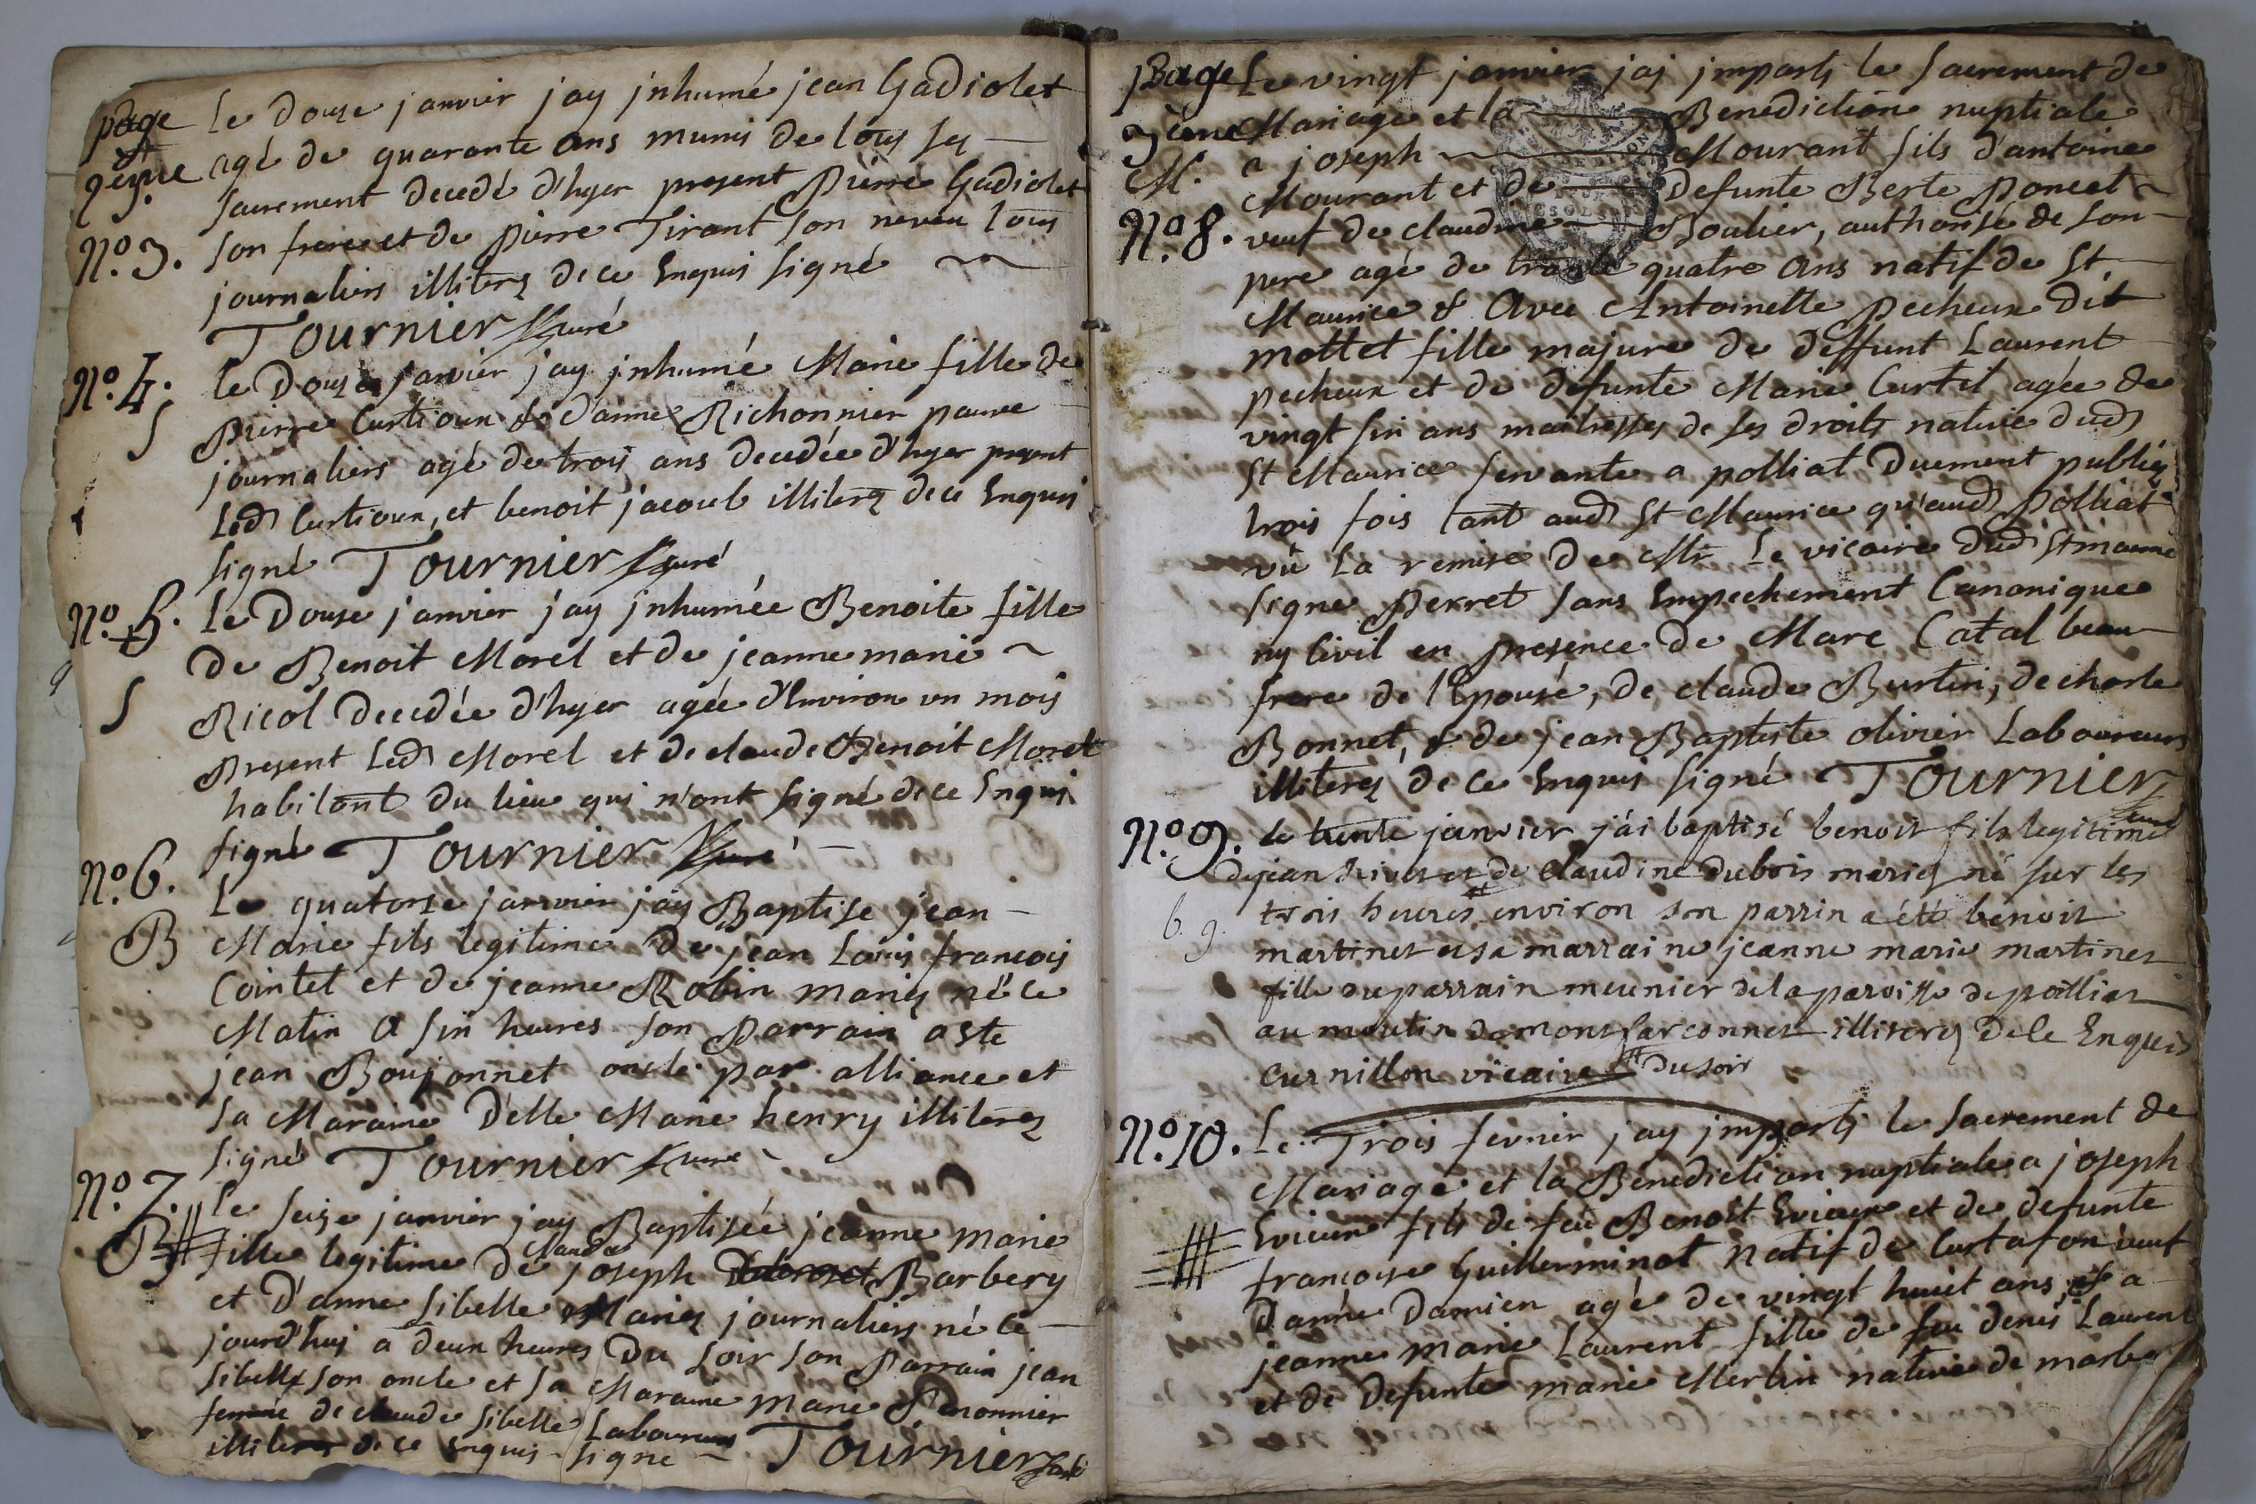 page
2eme
Le Douze janvier jay jnhumé jean Gadiolet
agé de quarante ans munis de tous ses
N.o 3.
sacrement decedé d'hyer present Pierre Gadiolet
son frere et de pierre Tirant son neveu tous
journaliers illiterez de ce Enquis signé
Tournier Curé
N.o 4.
S
le Douze janvier jay jnhumé Marie fille de
Pierre Curtioux & d'anne Richonnier pauvre
journaliers agé de trois ans decedée d'hyer present
Led Curtioux, et benoit jacoub illiterez de ce Enquis
signé Tournier Curé
N.o 5.
S
Le Douze janvier jay jnhumée Benoite fille
De Benoit Morel et de jeanne marie
Ricol Decedée d'hyer agée d'Environ un mois
Present Led Morel et de claude Benoit Morel
habitant du lieu qui n'ont signé de ce Enquis
signé Tournier Curé
N.o 6.
B
Le quatorze janvier jay Baptise jean
Marie fils legitime de jean Louis francois
Cointet et de jeanne Robin mariez né ce
Matin a six heures son Parrain a Ete
jean Boujonnet oncle par alliance et
Sa Maraine Delle Marie henry illiterez
signé Tournier Curé
N.o 7.
B
Le seize janvier jay Baptisée jeanne marie
claude
fille legitime de joseph Barbery
et D'anne sibelle Mariez journaliers né ce
jourd'huy a deux heures Du soir son Parrain jean
sibelle son oncle et sa Maraine Marie Peronnier
femme de claude sibelle Laboureurs
illiterez de ce Enquis signé Tournier Curé
Page
3eme
M.
N.o 8.
Le vingt janvier jay jmparti le sacrement de
Mariage et la Benediction nuptiale
a joseph Mourant fils d'antoine
Mourant et de Defunte Berte Poncet
veuf de claudine Boulier, authorisé de son
pere agé de trante quatre ans natif de St.
Maurice & Avec Antoinette Pecheux dit
mottet fille majure de deffunt Laurent
pecheux et de defunte Marie Curtil agée de
vingt six ans maitresses de ses droits native dud
St Maurice servante a polliat Duement publiez
trois fois tant aud St Maurice qu'aud Polliat
vû La remise de Mr. Le vicaire dud St maurice
signe Perret sans Empechement Canonique
ny Civil en presence de Marc Catal beau
frere de l'Epouse, de claude Burtin, de charle
Bonnet, & de jean Baptiste olivier Laboureurs
illiterez de ce Enquis signé Tournier
Curé
N.o 9.
b. g.
Le trente janvier j'ai baptisé benoit fils legitime
de jean et de Claudine dubois mariez né sur les
trois heures environ son parrin a été benoit
martinet et sa marraine jeanne marie martinet
fille du parrain meunier de la paroisse de polliat
au moulin de montfarconnet illiterez De ce Enquis
Curnillon vicaire du soir
N.o 10.
Le Trois fevrier jay jmparti le sacrement de
Mariage et la Benediction nuptiale a joseph
Evieux fils de feu Benoit Evieux et de defunte
francoise Guillerminot natif de Curtafon veuf
D'anne Damien agé de vingt huit ans & a
jeanne marie Laurent fille de feu denis Laurent
et de Defunte marie Merlin native de marbo